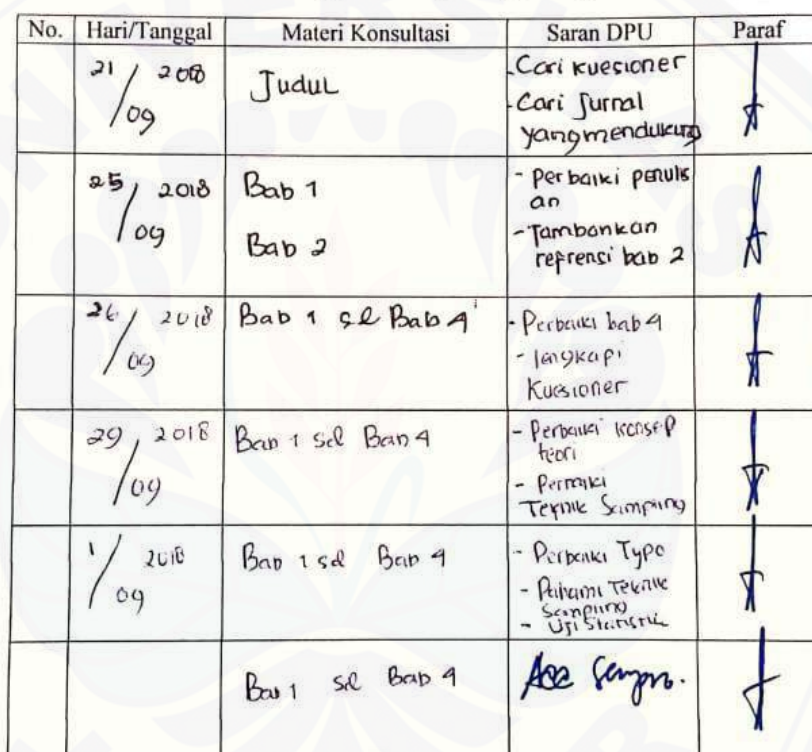 No. Hari/Tanggal Materi Konsultasi Saran DPU Paraf
21/09 2018 Judul - Cari kuesioner
- Cari Jurnal
yang mendukung
25/09 2018 Bab 1 - Perbaiki penulis
an
Bab 2 - Tambahkan
reprensi bab 2
26/09 2018 Bab 1 sd Bab 4 - Perbaiki bab 4
- lengkapi
Kuesioner
29/09 2018 Bab 1 sd Bab 4 - Perbaiki konsep
teori
-
Teknik Sampling
1/09 2018 Bab 1 sd Bab 4 - Perbaiki Typo
- Pahami Teknik
Sampling
- Uji Statistik
Bab 1 sd Bab 4 Acc Sempro.